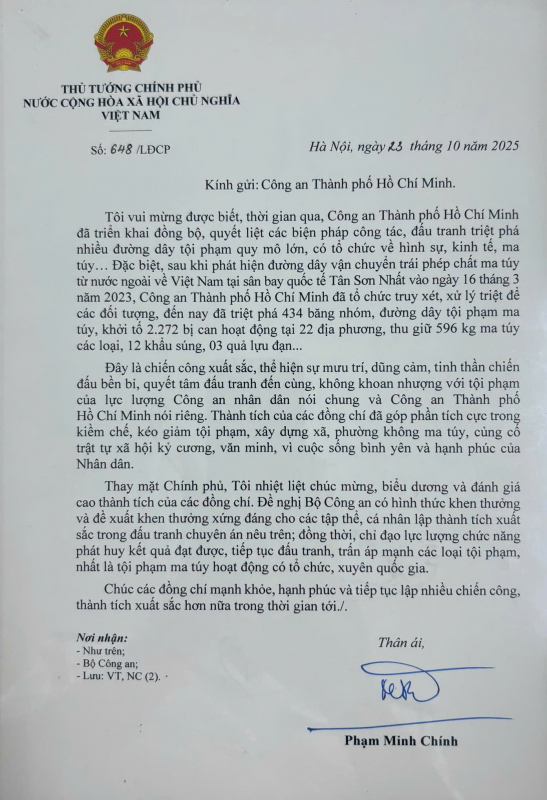 THỦ TƯỚNG CHÍNH PHỦ
NƯỚC CỘNG HÒA XÃ HỘI CHỦ NGHĨA
VIỆT NAM
Số: 648 /LĐCP
Hà Nội, ngày 23 tháng 10 năm 2025
Kính gửi: Công an Thành phố Hồ Chí Minh.
Tôi vui mừng được biết, thời gian qua, Công an Thành phố Hồ Chí Minh
đã triển khai đồng bộ, quyết liệt các biện pháp công tác, đấu tranh triệt phá
nhiều đường dây tội phạm quy mô lớn, có tổ chức về hình sự, kinh tế, ma
túy… Đặc biệt, sau khi phát hiện đường dây vận chuyển trái phép chất ma túy
từ nước ngoài về Việt Nam tại sân bay quốc tế Tân Sơn Nhất vào ngày 16 tháng 3
năm 2023, Công an Thành phố Hồ Chí Minh đã tổ chức truy xét, xử lý triệt để
các đối tượng, đến nay đã triệt phá 434 băng nhóm, đường dây tội phạm ma
túy, khởi tố 2.272 bị can hoạt động tại 22 địa phương, thu giữ 596 kg ma túy
các loại, 12 khẩu súng, 03 quả lựu đạn...
Đây là chiến công xuất sắc, thể hiện sự mưu trí, dũng cảm, tinh thần chiến
đấu bền bỉ, quyết tâm đấu tranh đến cùng, không khoan nhượng với tội phạm
của lực lượng Công an nhân dân nói chung và Công an Thành phố
Hồ Chí Minh nói riêng. Thành tích của các đồng chí đã góp phần tích cực trong
kiềm chế, kéo giảm tội phạm, xây dựng xã, phường không ma túy, củng cố
trật tự xã hội kỷ cương, văn minh, vì cuộc sống bình yên và hạnh phúc của
Nhân dân.
Thay mặt Chính phủ, Tôi nhiệt liệt chúc mừng, biểu dương và đánh giá
cao thành tích của các đồng chí. Đề nghị Bộ Công an có hình thức khen thưởng
và đề xuất khen thưởng xứng đáng cho các tập thể, cá nhân lập thành tích xuất
sắc trong đấu tranh chuyên án nêu trên; đồng thời, chỉ đạo lực lượng chức năng
phát huy kết quả đạt được, tiếp tục đấu tranh, trấn áp mạnh các loại tội phạm,
nhất là tội phạm ma túy hoạt động có tổ chức, xuyên quốc gia.
Chúc các đồng chí mạnh khỏe, hạnh phúc và tiếp tục lập nhiều chiến công,
thành tích xuất sắc hơn nữa trong thời gian tới./.
Nơi nhận:
- Như trên;
- Bộ Công an;
- Lưu: VT, NC (2).
Thân ái,
Phạm Minh Chính